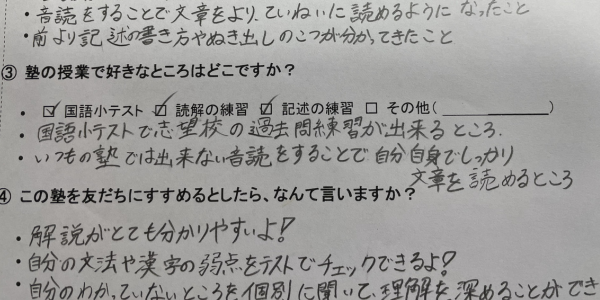 ・音読をすることで文章をより、ていねいに読めるようになったこと
・前より記述の書き方やぬき出しのこつが分かってきたこと
③ 塾の授業で好きなところはどこですか?
・☑ 国語小テスト ☑ 読解の練習 ☑ 記述の練習 □ その他(____________)
・国語小テストで志望校の過去問練習が出来るところ.
・いつもの塾では出来ない音読をすることで自分自身でしっかり
文章を読めるところ
④ この塾を友だちにすすめるとしたら、なんて言いますか?
・解説がとても分かりやすいよ!
・自分の文法や漢字の弱点をテストでチェックできるよ!
・自分のわかっていないところを個別に聞いて、理解を深めることができ